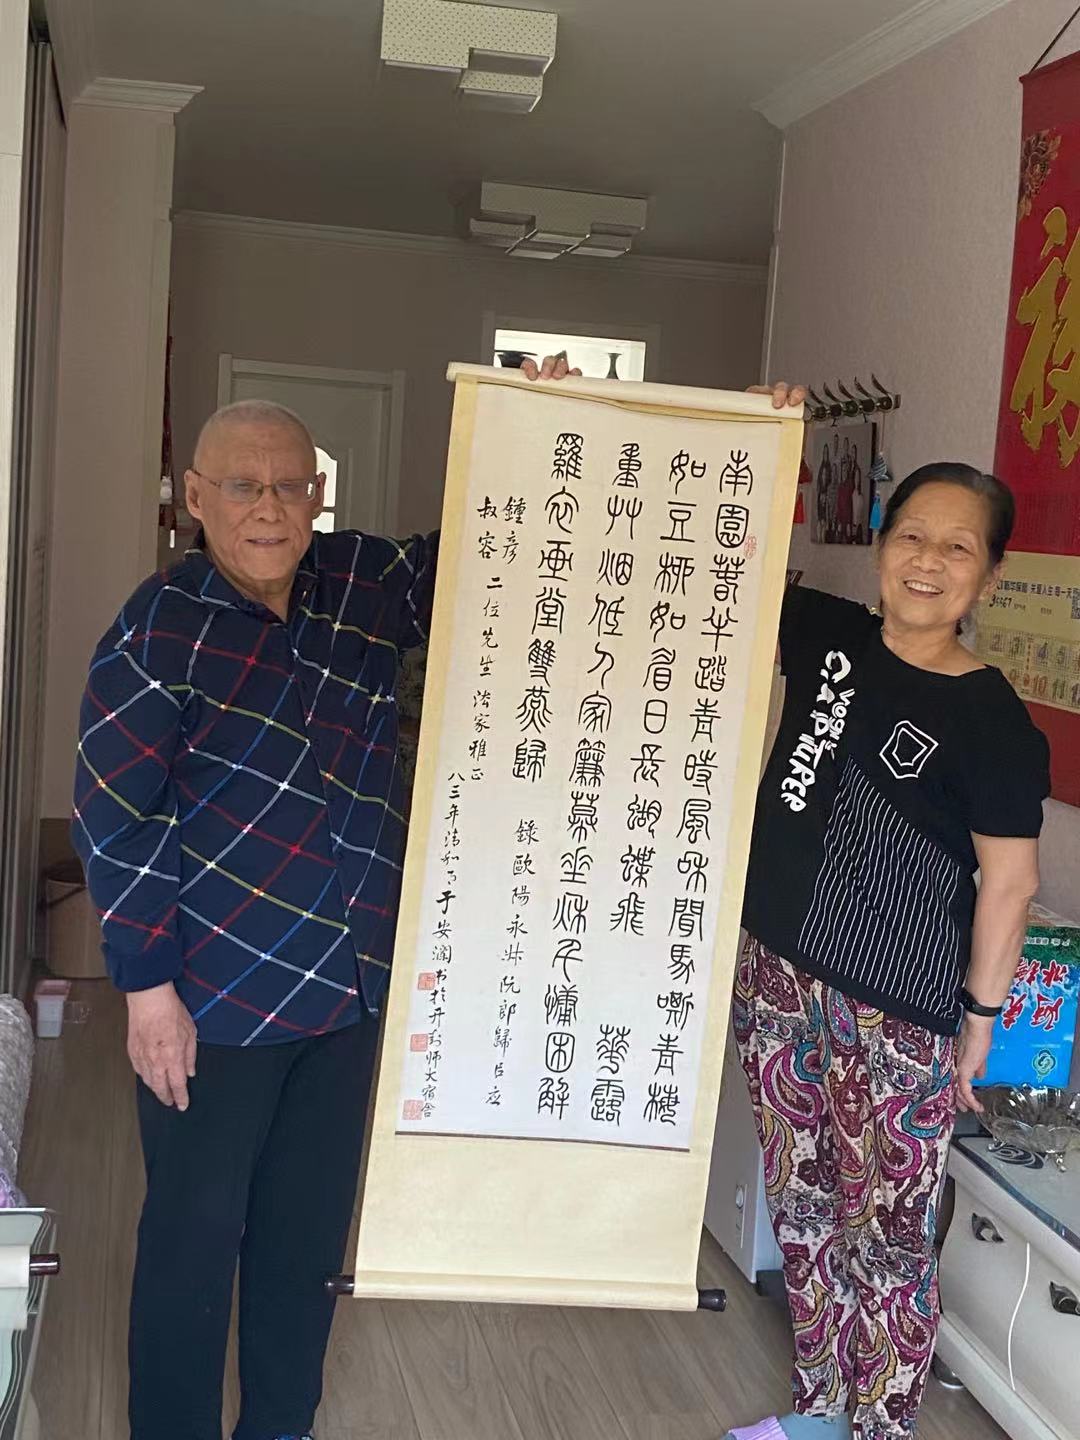 南園萅半踏青時風和聞馬嘶青梅
如豆柳如眉日長蝴蝶飛 華露
重艸烟低人家簾幕垂秌千慵困解
羅衣畫堂雙燕歸
錄歐陽永叔阮郎歸㠯应
鍾彦
叔容 二位先生法家雅正
八三年清和月于安瀾书于开封师大宿舍
福
VOGUE
冰糖